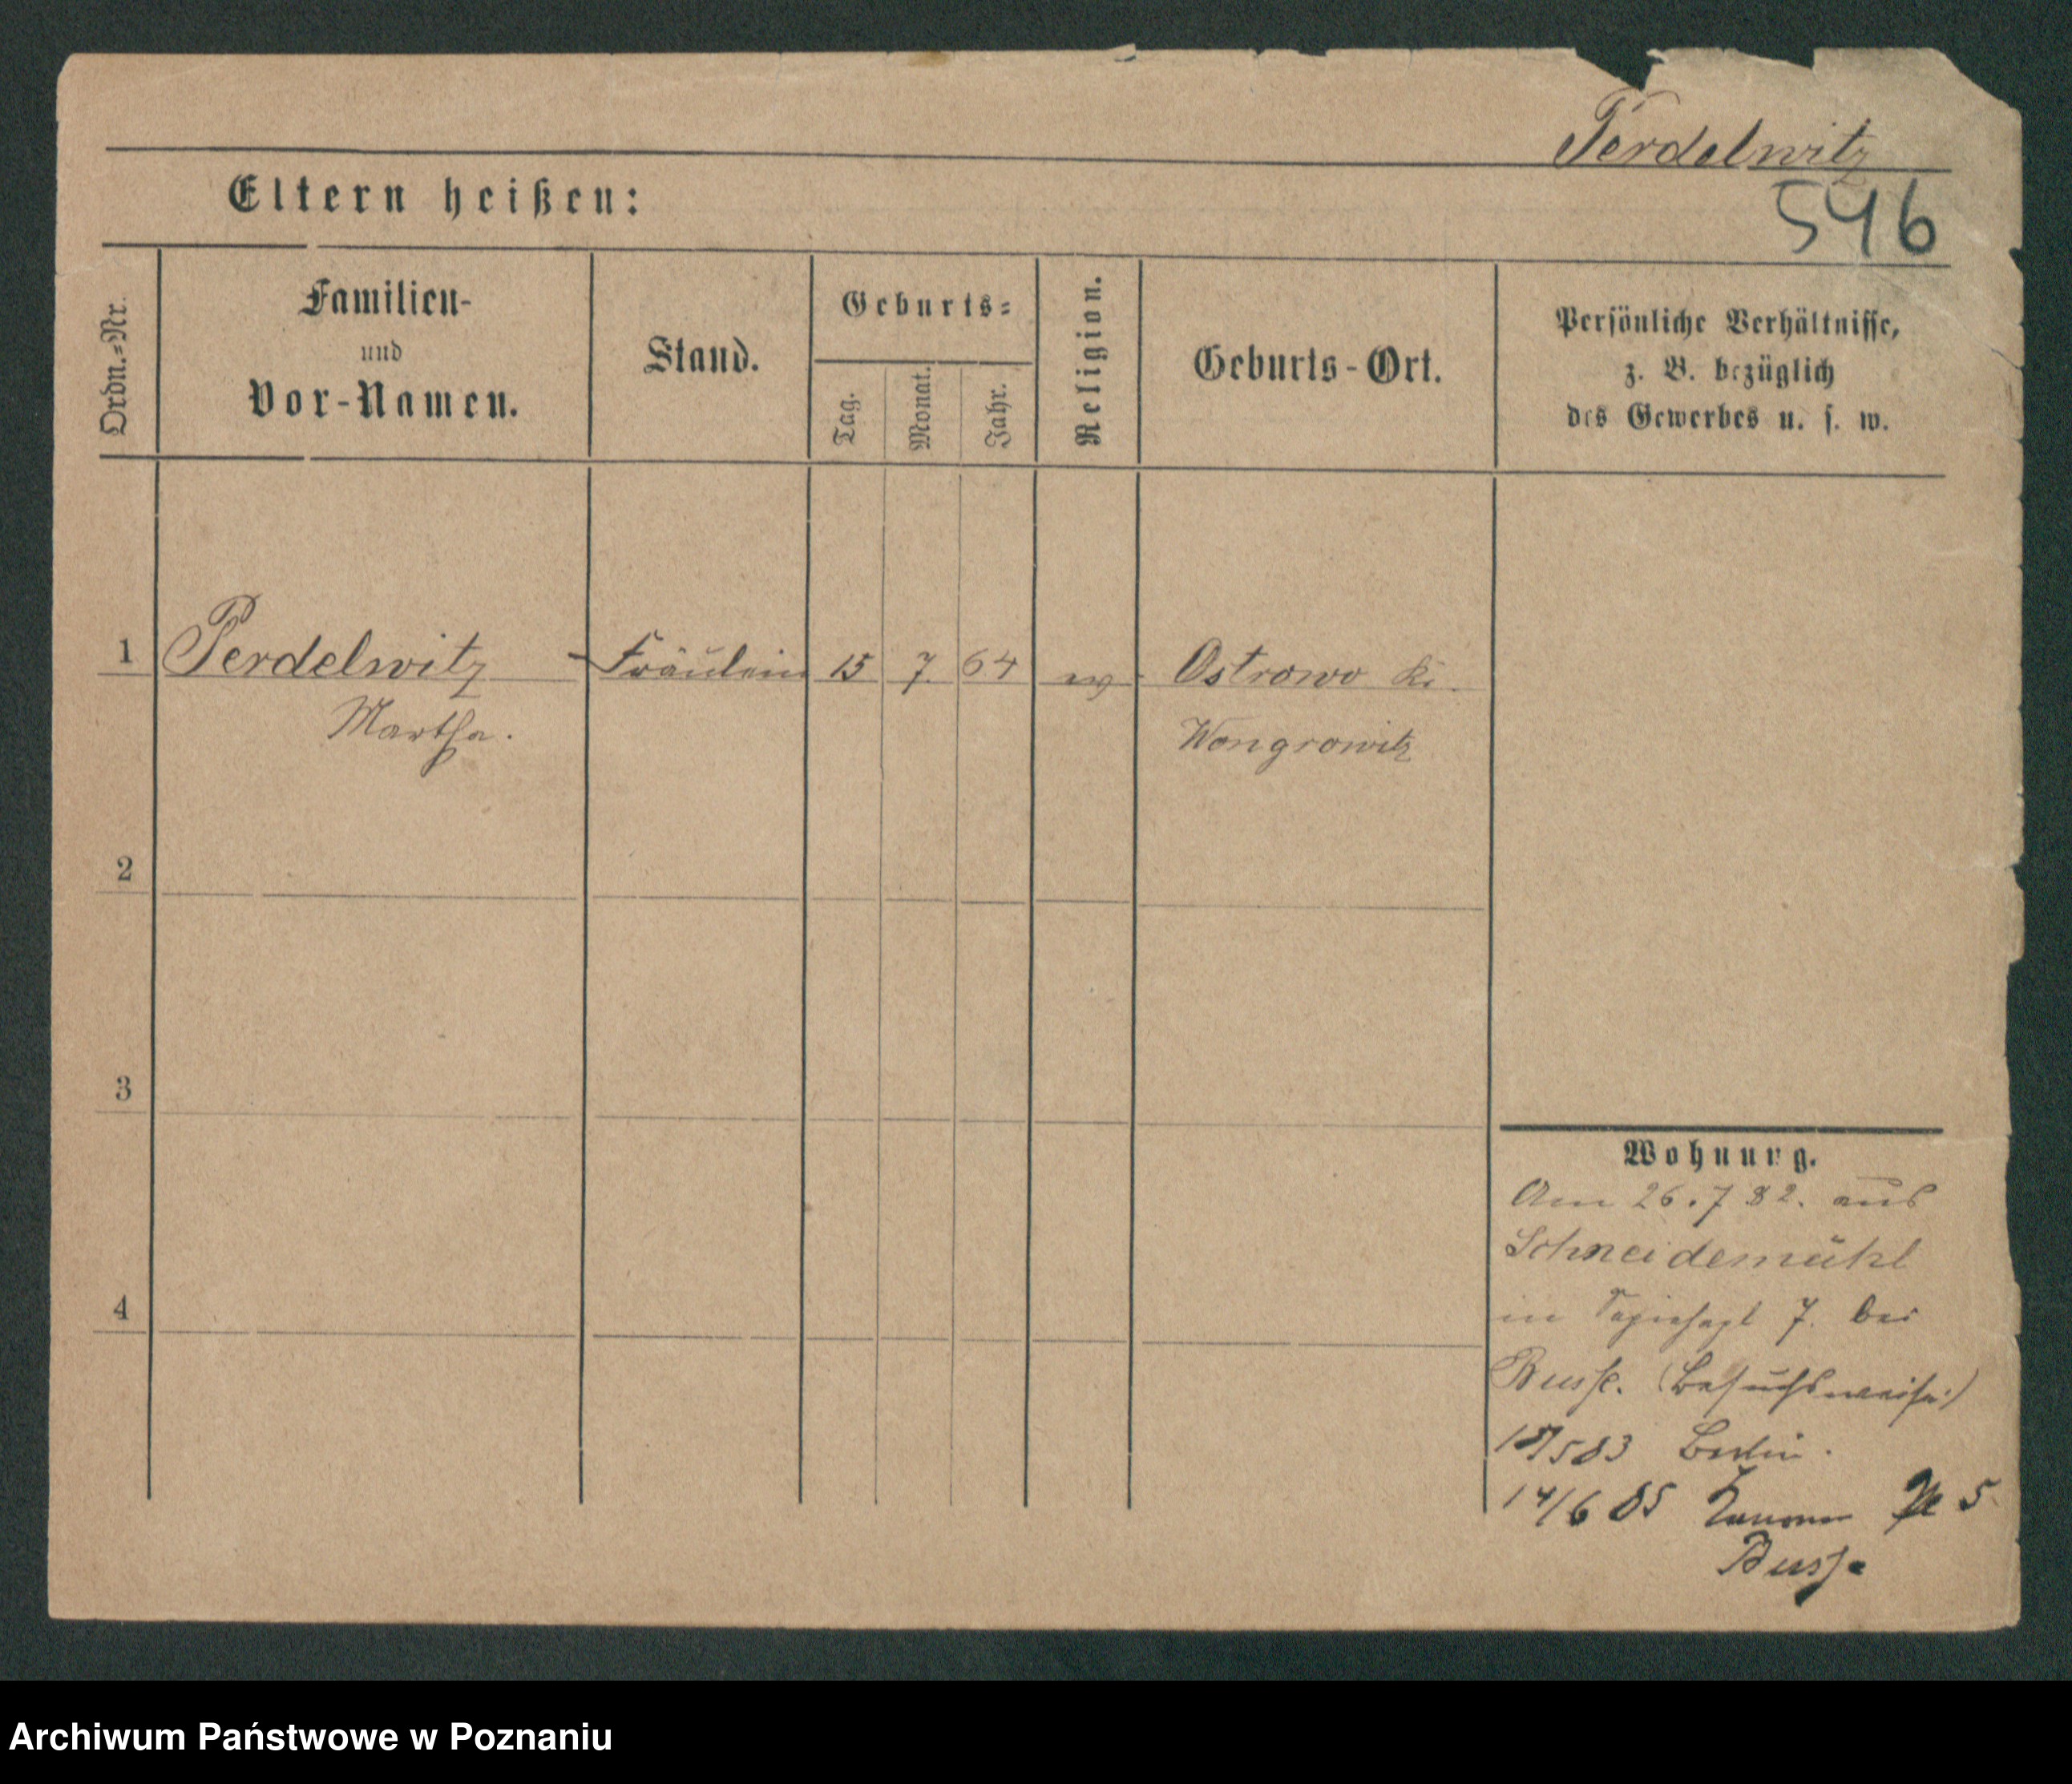 Perdelwitz
Eltern heißen:
546
Ordn.=Nr.
Familien-
und
Vor-Namen.
Stand.
Geburts=
Tag.
Monat.
Jahr.
Religion.
Geburts-Ort.
Persönliche Verhältnisse,
z. B. bezüglich
des Gewerbes u. s. w.
1 Perdelwitz - Fräulein 15 7. 64 ev Ostrowo Kr.
Martha. Wongrowitz
2
3
4
Wohnung.
Am 26.7 82. aus
Schneidemühl
in 7. bei
Busse. (Besuchsweise)
583 Berlin.
14/6 85 5
Busse
Archiwum Państwowe w Poznaniu